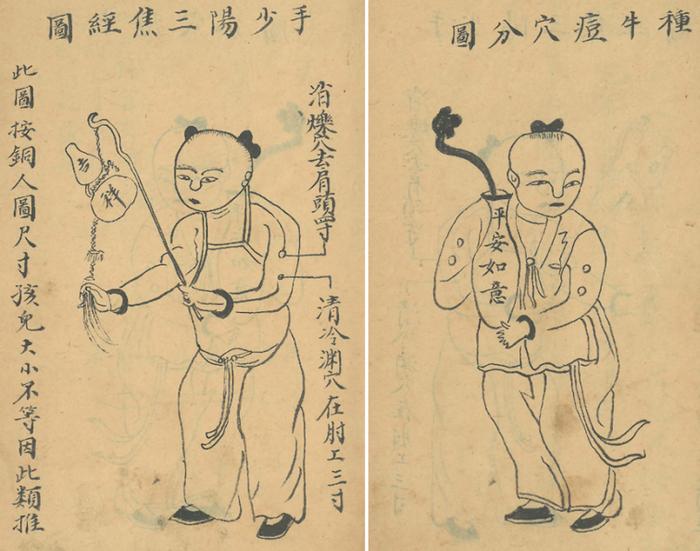 手少陽三焦經圖
消爍穴去肩頭四寸
清冷淵穴在肘上三寸
吉
祥
此圖按銅人圖尺寸孩兒大小不等因此類推
種牛痘穴分圖
平安如意